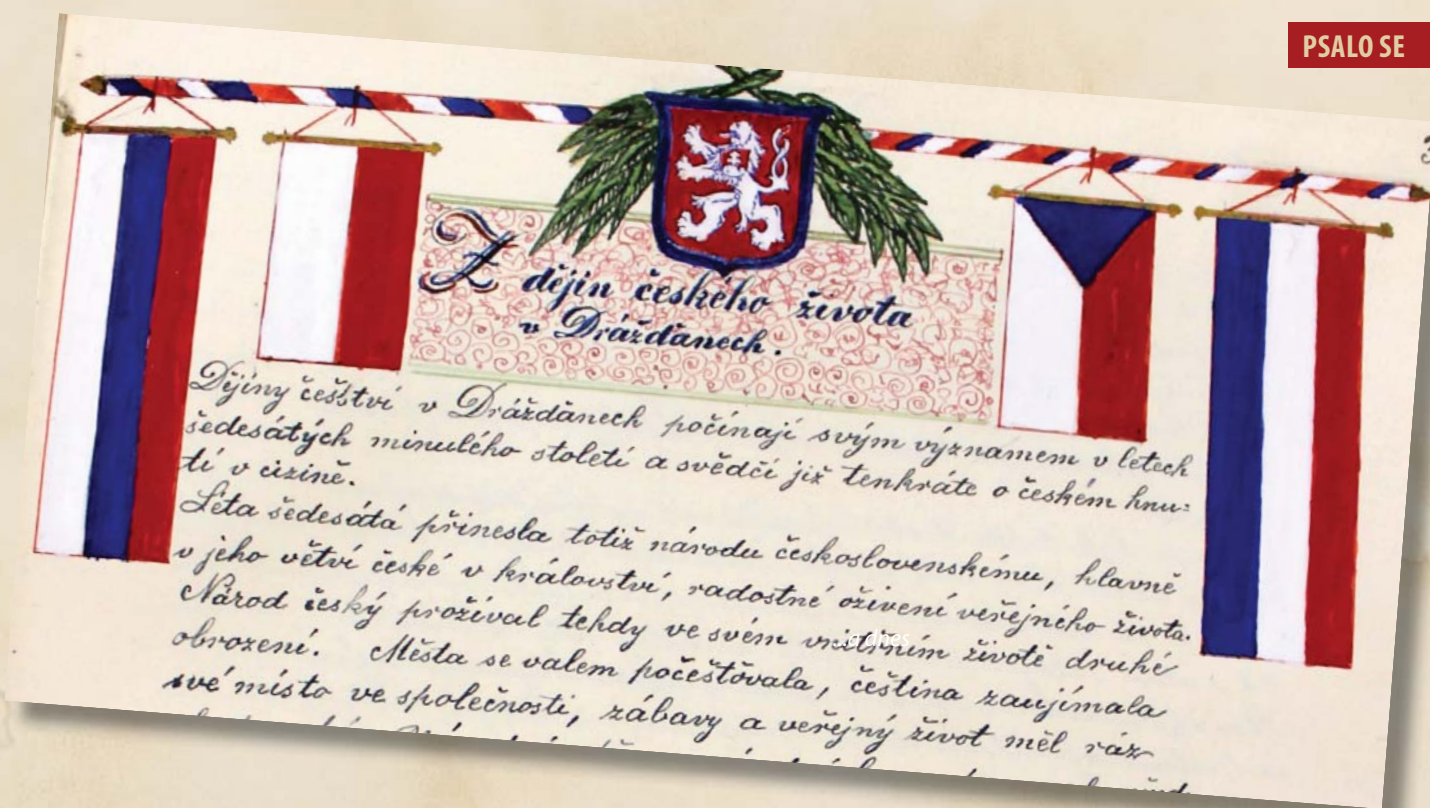 PSALO SE
Z dějin českého života
v Drážďanech.
Dějiny češství v Drážďanech počínají svým významem v letech
šedesátých minulého století a svědčí již tenkráte o českém hnu:
tí v cizině.
Léta šedesátá přinesla totiž národu československému, hlavně
v jeho větvi české v království, radostné oživení veřejného života.
Národ český prožíval tehdy ve svém vnitřním životě druhé
obrození. Města se valem počešťovala, čeština zaujímala
své místo ve společnosti, zábavy a veřejný život měl ráz